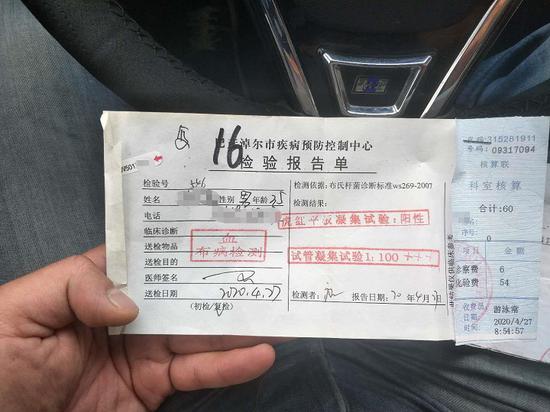 16
巴彦淖尔市疾病预防控制中心
检验报告单
检验号 546
姓名 性别 男 年龄 35
电话
临床诊断
送检物品
送检目的
血
布病检测
医师签名
送检日期 2020.4.27
(初检/复检)
检测依据:布氏杆菌诊断标准ws269-2007
检测结果:
虎红平板凝集试验:阳性
试管凝集试验1:100+++
检测者: 报告日期:20年4月
号码:315281911
号码:09317094
核算联
科室核算
合计:60
0
金额
诊察费 6
化验费 54
收费员 游泳常
日期: 2020/4/27
时间: 8:54:57